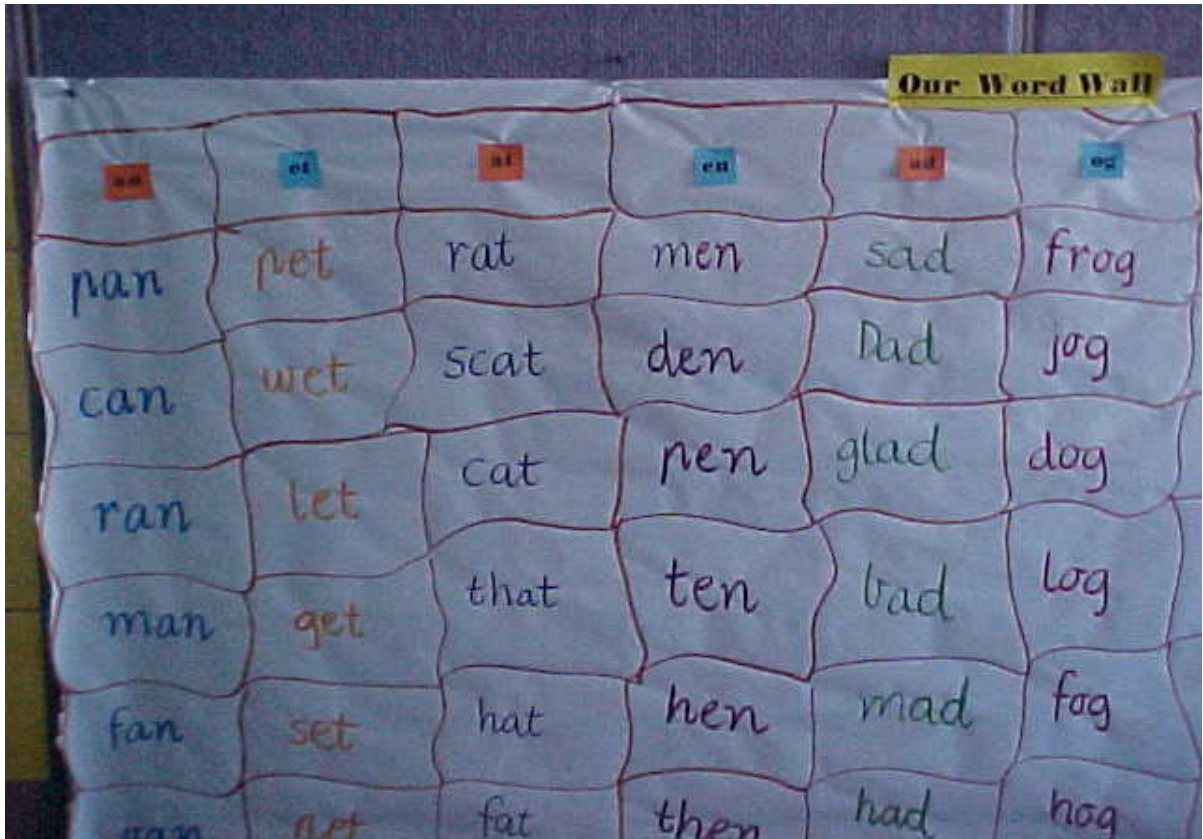 Our Word Wall
an et at en ad og
pan pet rat men sad frog
can wet scat den Dad jog
ran let cat pen glad dog
man get that ten bad log
fan set hat hen mad fog
fat then had hog